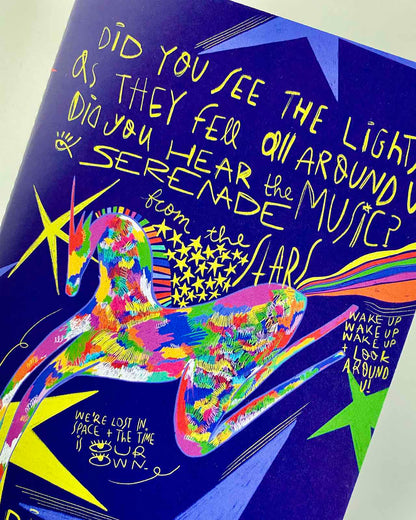 DiD YOU SEE THE LIGHTS
as THEY Fell all AROUND
DiD you HEAR the MUSiC?
SERENADE
from the
STARS
WAKE UP
WAKE UP
WAKE UP
+ LOOK
AROUND
U!
WE'RE LOST iN
SPACE + THE TiME
iS OUR
OWN.